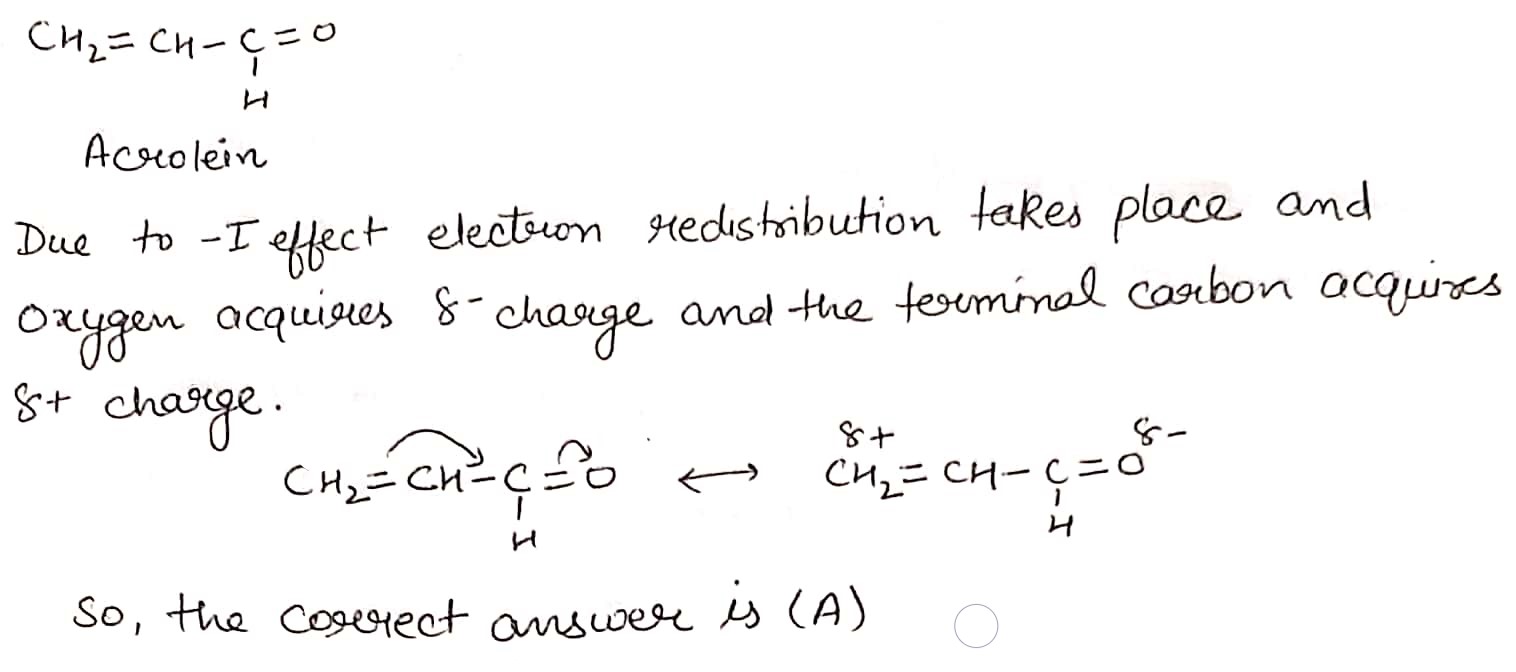 CH₂=CH-C=O
H
Acrolein
Due to -I effect electron redistribution takes place and
oxygen acquires δ- charge and the terminal carbon acquires
δ+ charge.
δ+ δ-
CH₂=CH-C=O ⟷ CH₂=CH-C=O
H H
So, the correct answer is (A)